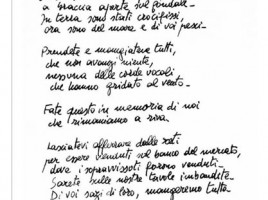 a braccia aperte sul fondale.
In terra sono stati crocifissi,
ora sono del mare e di voi pesci.
Prendete e mangiatene tutti,
che non avanzi niente,
nessuna delle corde vocali
che hanno gridato al vento.
Fate questo in memoria di noi
che rimaniamo a riva.
Lasciatevi afferrare dalle reti
per essere venduti sul banco del mercato,
dove i sopravvissuti furono venduti.
Sarete sulle nostre tavole imbandite
Di voi sazi di loro, mangeremo tutto.